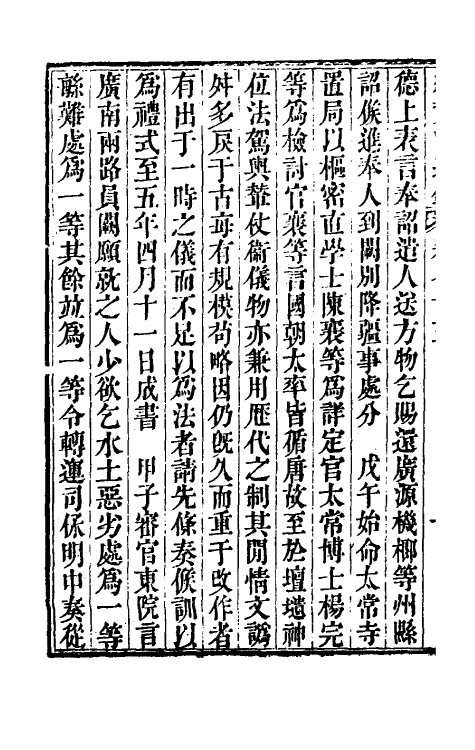 德上表言奉詔遣人送方物乞賜還廣源機榔等州縣
詔候進奉人到闕別降疆事處分　戊午始命太常寺
置局以樞密直學士陳襄等爲詳定官太常博士楊完
等爲檢討官襄等言國朝太率皆循唐故至於壇壝神
位法駕輿輦仗衞儀物亦兼用歷代之制其閒情文譌
舛多戾于古每有規模苟略因仍旣久而重于改作者
有出于一時之儀而不足以爲法者請先條奏候訓以
爲禮式至五年四月十一日成書　甲子審官東院言
廣南兩路員闕願就之人少欲乞水土惡劣處爲一等
縣難處爲一等其餘竝爲一等令轉運司係明申奏從